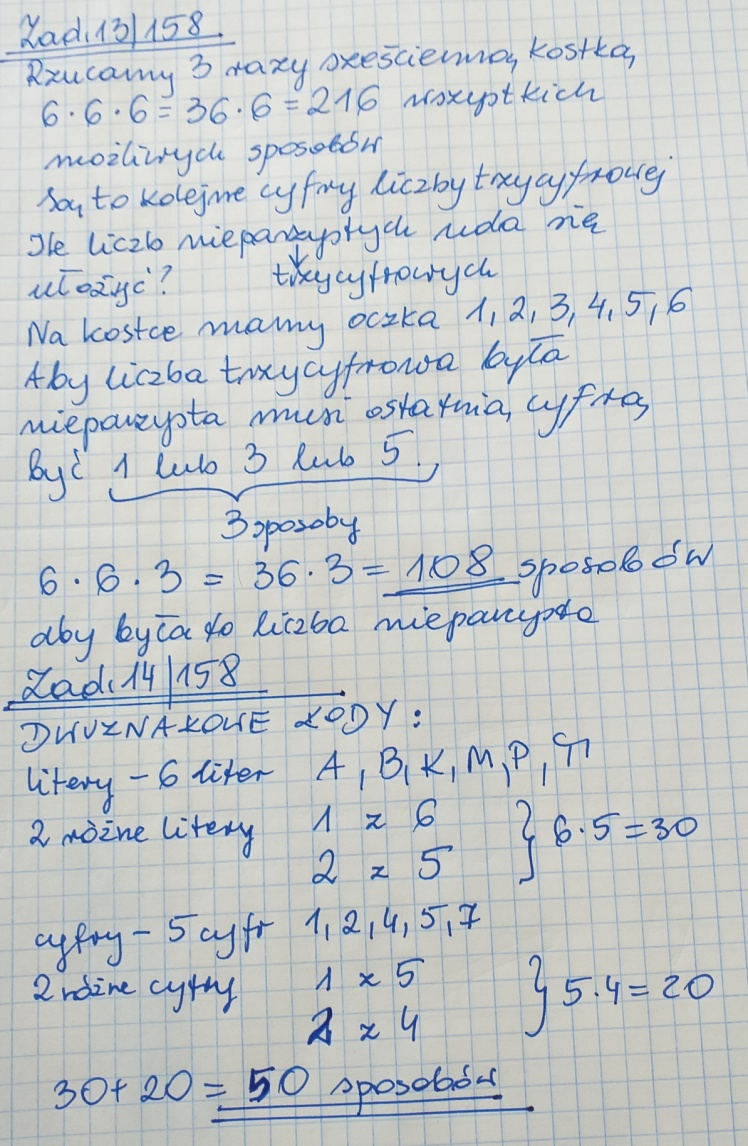 Zad. 13/158.
Rzucamy 3 razy sześcienną kostką
6 · 6 · 6 = 36 · 6 = 216 wszystkich
możliwych sposobów
Są to kolejne cyfry liczby trzycyfrowej
Ile liczb nieparzystych uda się
ułożyć? trzycyfrowych
Na kostce mamy oczka 1, 2, 3, 4, 5, 6
Aby liczba trzycyfrowa była
nieparzysta musi ostatnią cyfrą
być 1 lub 3 lub 5.
3 sposoby
6 · 6 · 3 = 36 · 3 = 108 sposobów
aby była to liczba nieparzysta
Zad. 14/158
DWUZNAKOWE KODY:
litery - 6 liter A, B, K, M, P, T
2 różne litery 1 z 6
2 z 5 } 6 · 5 = 30
cyfry - 5 cyfr 1, 2, 4, 5, 7
2 różne cyfry 1 z 5
2 z 4 } 5 · 4 = 20
30 + 20 = 50 sposobów